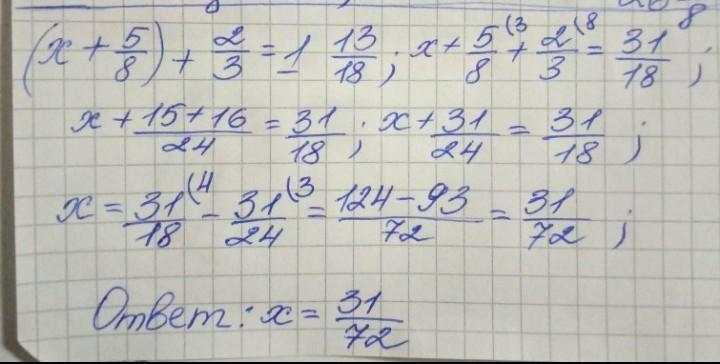 (x + 5/8) + 2/3 = 1 13/18; x + 5/8 (3 + 2/3 (8 = 31/18;
x + 15+16/24 = 31/18; x + 31/24 = 31/18;
x = 31/18 (4 - 31/24 (3 = 124-93/72 = 31/72;
Ответ: x = 31/72